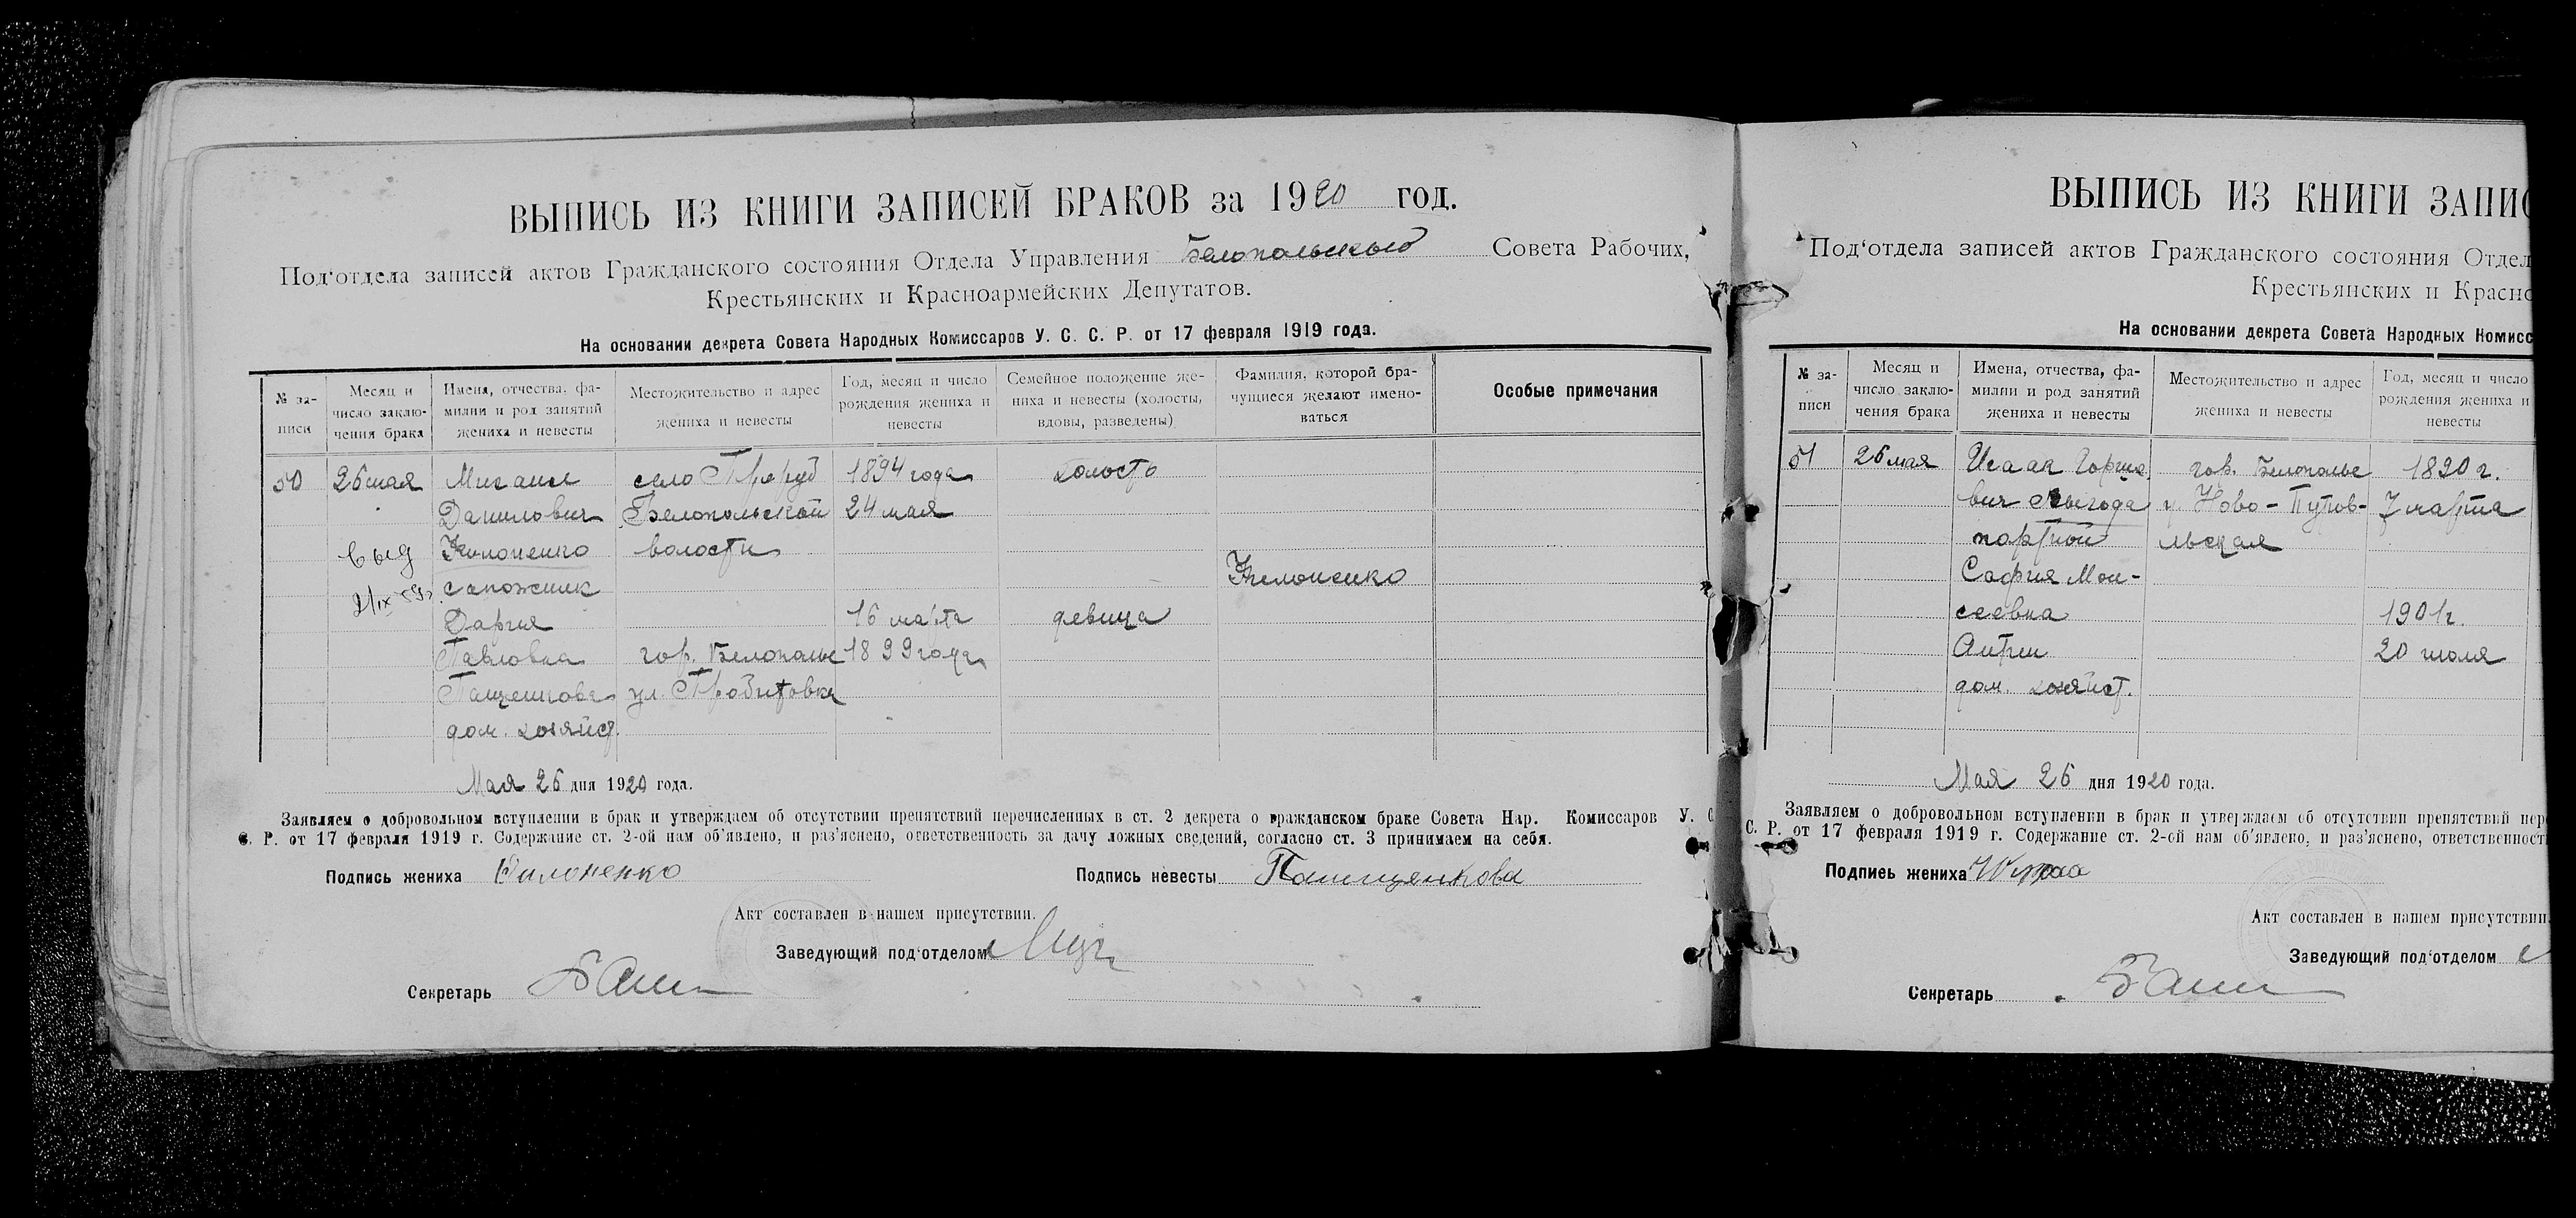 ВЫПИСЬ ИЗ КНИГИ ЗАПИСЕЙ БРАКОВ за 1920 год.
Под'отдела записей актов Гражданского состояния Отдела Управления Белопольский Совета Рабочих,
Крестьянских и Красноармейских Депутатов.
На основании декрета Совета Народных Комиссаров У. С. С. Р. от 17 февраля 1919 года.
№ за-
писи
Месяц и
число заклю-
чения брака
Имена, отчества, фа-
милии и род занятий
жениха и невесты
Местожительство и адрес
жениха и невесты
Год, месяц и число
рождения жениха и
невесты
Семейное положение же-
ниха и невесты (холосты,
вдовы, разведены)
Фамилия, которой бра-
чущиеся желают имено-
ваться
Особые примечания
50 26 мая Михаил село 1894 года холост
Данилович Белопольской 24 мая
выд Филоненко волости
сапожник Филоненко
Дария 16 марта девица
Павловна гор. Белополье 1899 года
Пащенкова ул.
дом. хозяйст.
Мая 26 дня 1920 года.
Заявляем о добровольном вступлении в брак и утверждаем об отсутствии препятствий перечисленных в ст. 2 декрета о гражданском браке Совета Нар. Комиссаров У. С
С. Р. от 17 февраля 1919 г. Содержание ст. 2-ой нам об'явлено, и раз'яснено, ответственность за дачу ложных сведений, согласно ст. 3 принимаем на себя.
Подпись жениха Филоненко
Подпись невесты Пащенкова
Акт составлен в нашем присутствии.
Заведующий под'отделом
Секретарь
ВЫПИСЬ ИЗ КНИГИ ЗАПИС
Под'отдела записей актов Гражданского состояния Отдел
Крестьянских и Красно
На основании декрета Совета Народных Комисс
№ за-
писи
Месяц и
число заклю-
чения брака
Имена, отчества, фа-
милии и род занятий
жениха и невесты
Местожительство и адрес
жениха и невесты
Год, месяц и число
рождения жениха и
невесты
51 26 мая Исаак гор. Белополье 1890 г.
вич Выгода у. Ново-Путив- 7 марта
портной льская
София Мои-
сеевна 1901 г.
20 июля
дом. хозяйст.
Мая 26 дня 1920 года.
Заявляем о добровольном вступлении в брак и утверждаем об отсутствии препятствий пер
С. Р. от 17 февраля 1919 г. Содержание ст. 2-ой нам об'явлено, и раз'яснено, ответственност
Подпись жениха
Акт составлен в нашем присутствии
Заведующий под'отделом
Секретарь